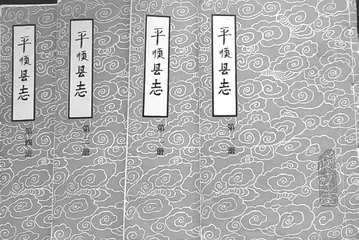 平順县志
第四册
平順县志
第三册
平順县志
第二册
平順县志
第一册